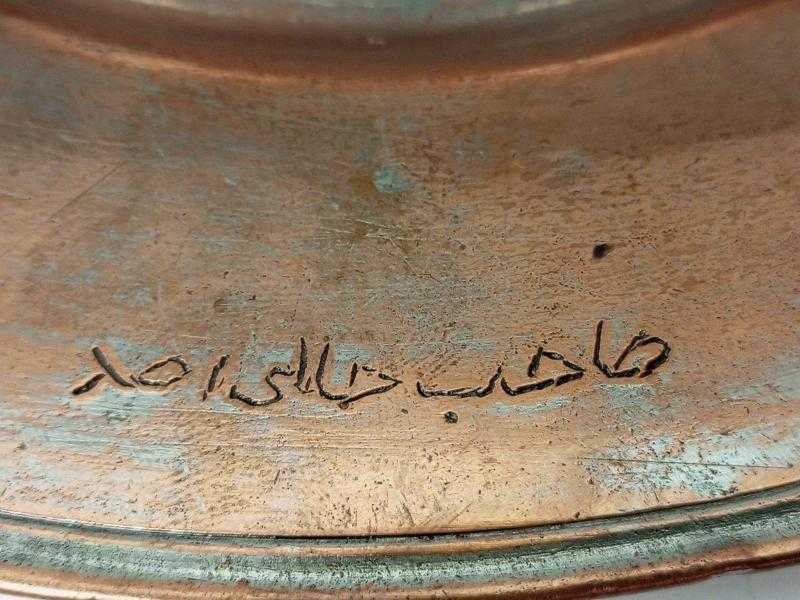 صاحب حاای احمد